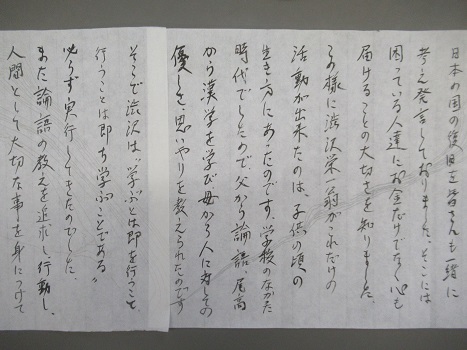 日本の国の復旧を皆さんも一緒に
考え発言しておりました。そこには
困っている人達にお金だけでなく心も
届けることの大切さを知りました。
この様に渋沢栄一翁がこれだけの
活動が出来たのは、子供の頃の
生き方にあったのです。学校のなかた
時代でしたので父から論語 尾高
から漢学を学び、母から人に対しての
優しさ、思いやりを教えられたのです
そこで渋沢は、〝学ぶとは即を行うこと
行うことは即ち学ぶことである〟
必らず実行してきたのでした。
また論語の教えを追求し、行動し、
人間として大切な事を身につけて